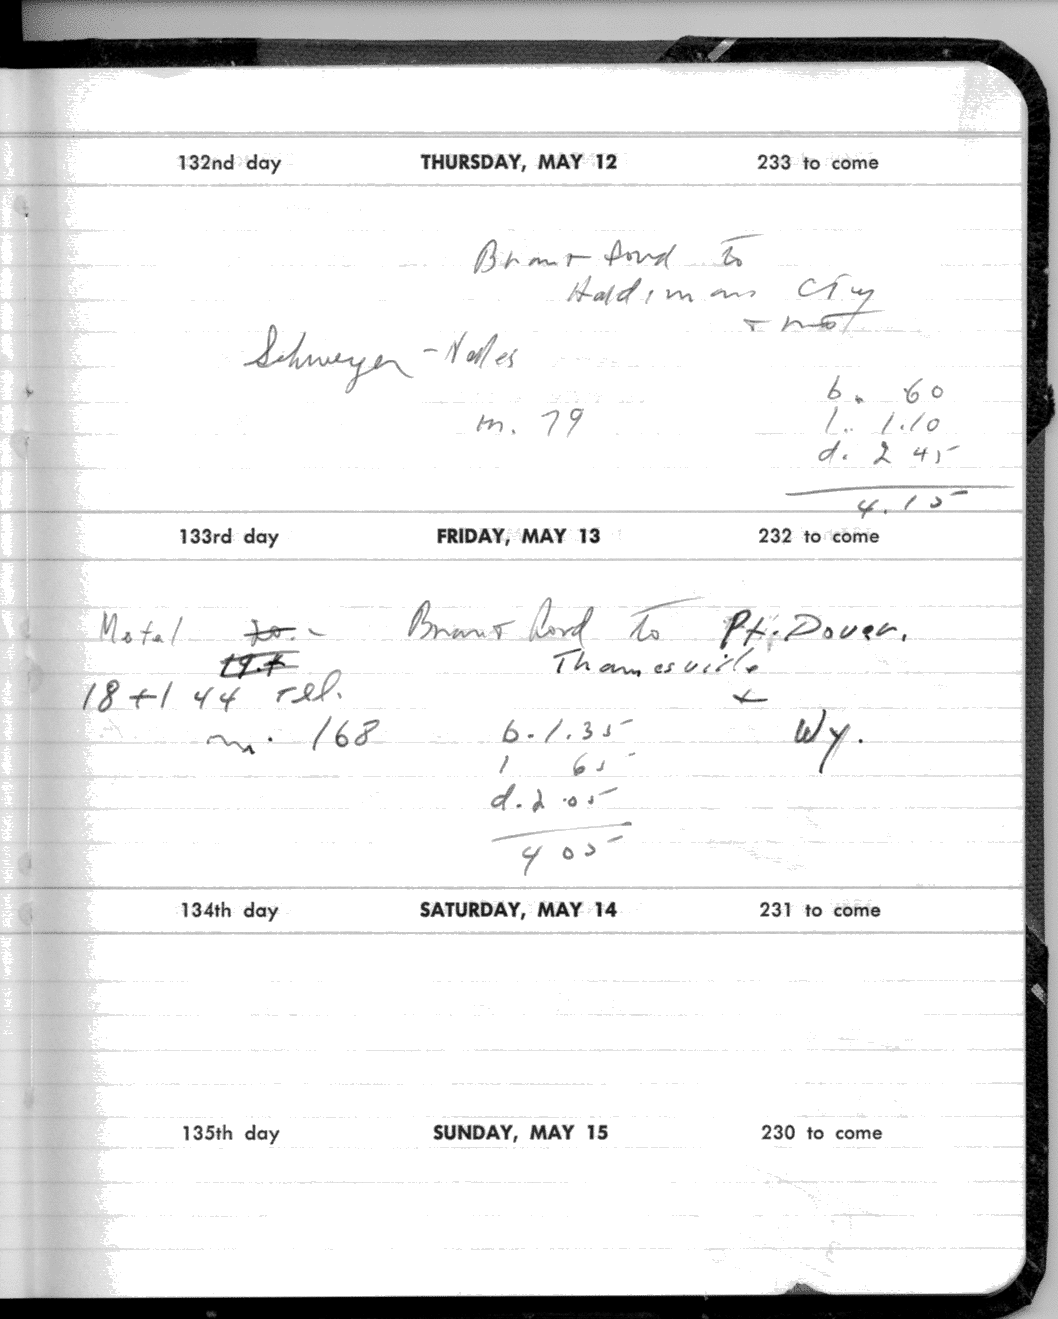 132nd day THURSDAY, MAY 12 233 to come
Brantford to
Haldiman Cty
+ mot
Schweyer - Nelles
m. 79
b. 60
l. 1.10
d. 2 45
4.15
133rd day FRIDAY, MAY 13 232 to come
Motel 20.- Brantford to Pt. Dover.
Thamesville
18+1 44 tel. +
m. 168 b. 1.35 Wy.
l 65
d. 2.05
4 05
134th day SATURDAY, MAY 14 231 to come
135th day SUNDAY, MAY 15 230 to come